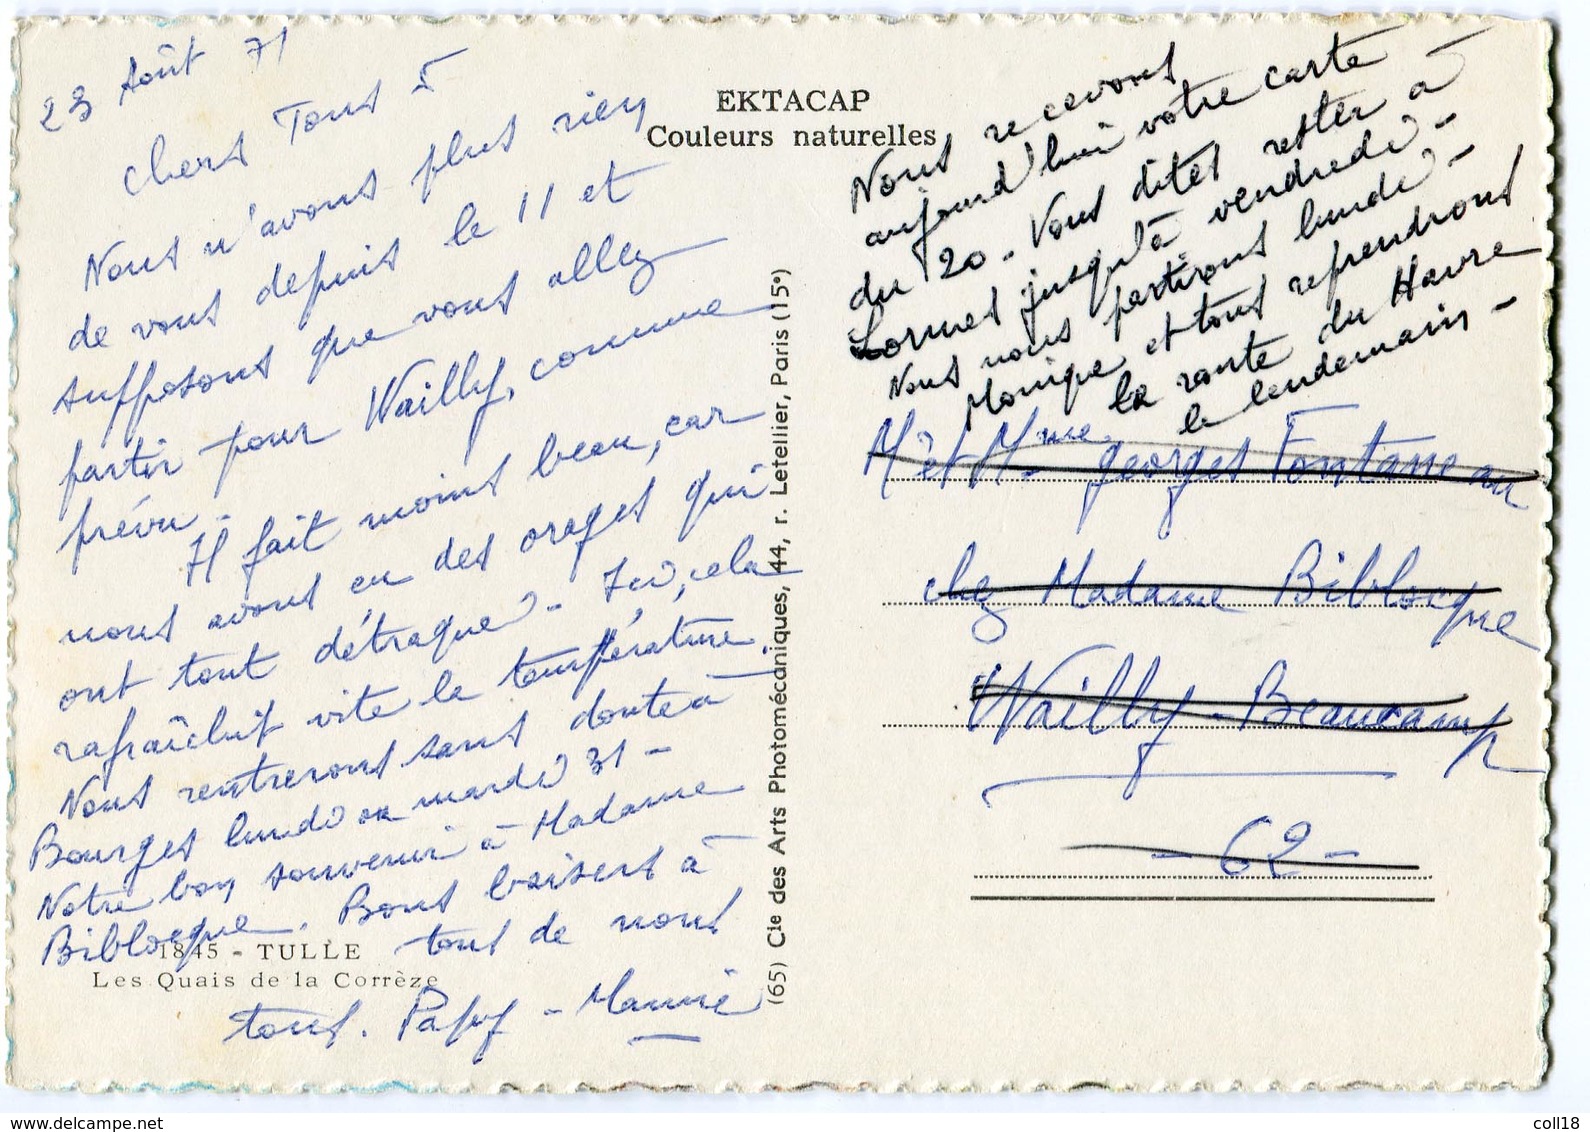 23 Août 71
Chers Tous 5
Nous n'avons plus rien
de vous depuis le 11 et
supposons que vous allez
partir pour Wailly, comme
prévu -
Il fait moins beau, car
nous avons eu des orages qui
ont tout détraqué - Ici, cela
rafraîchit vite la température.
Nous rentrerons sans doute à
Bourges lundi ou mardi 31 -
Notre bon souvenir à Madame
Biblocque. Bons baisers à
tous de nous
tous. Papy - Mamie
1845 - TULLE
Les Quais de la Corrèze
EKTACAP
Couleurs naturelles
(65) Cie des Arts Photomécaniques, 44, r. Letellier, Paris (15e)
Nous recevons
aujourd'hui votre carte
du 20 - Vous dites rester à
Lormes jusqu'à vendredi -
Nous nous partirons lundi -
Monique et tous reprendrons
la route du Havre
le lendemain -
Mr et Mme Georges Fontaneau
chez Madame Biblocque
Wailly-Beaucamp
- 62 -
coll18